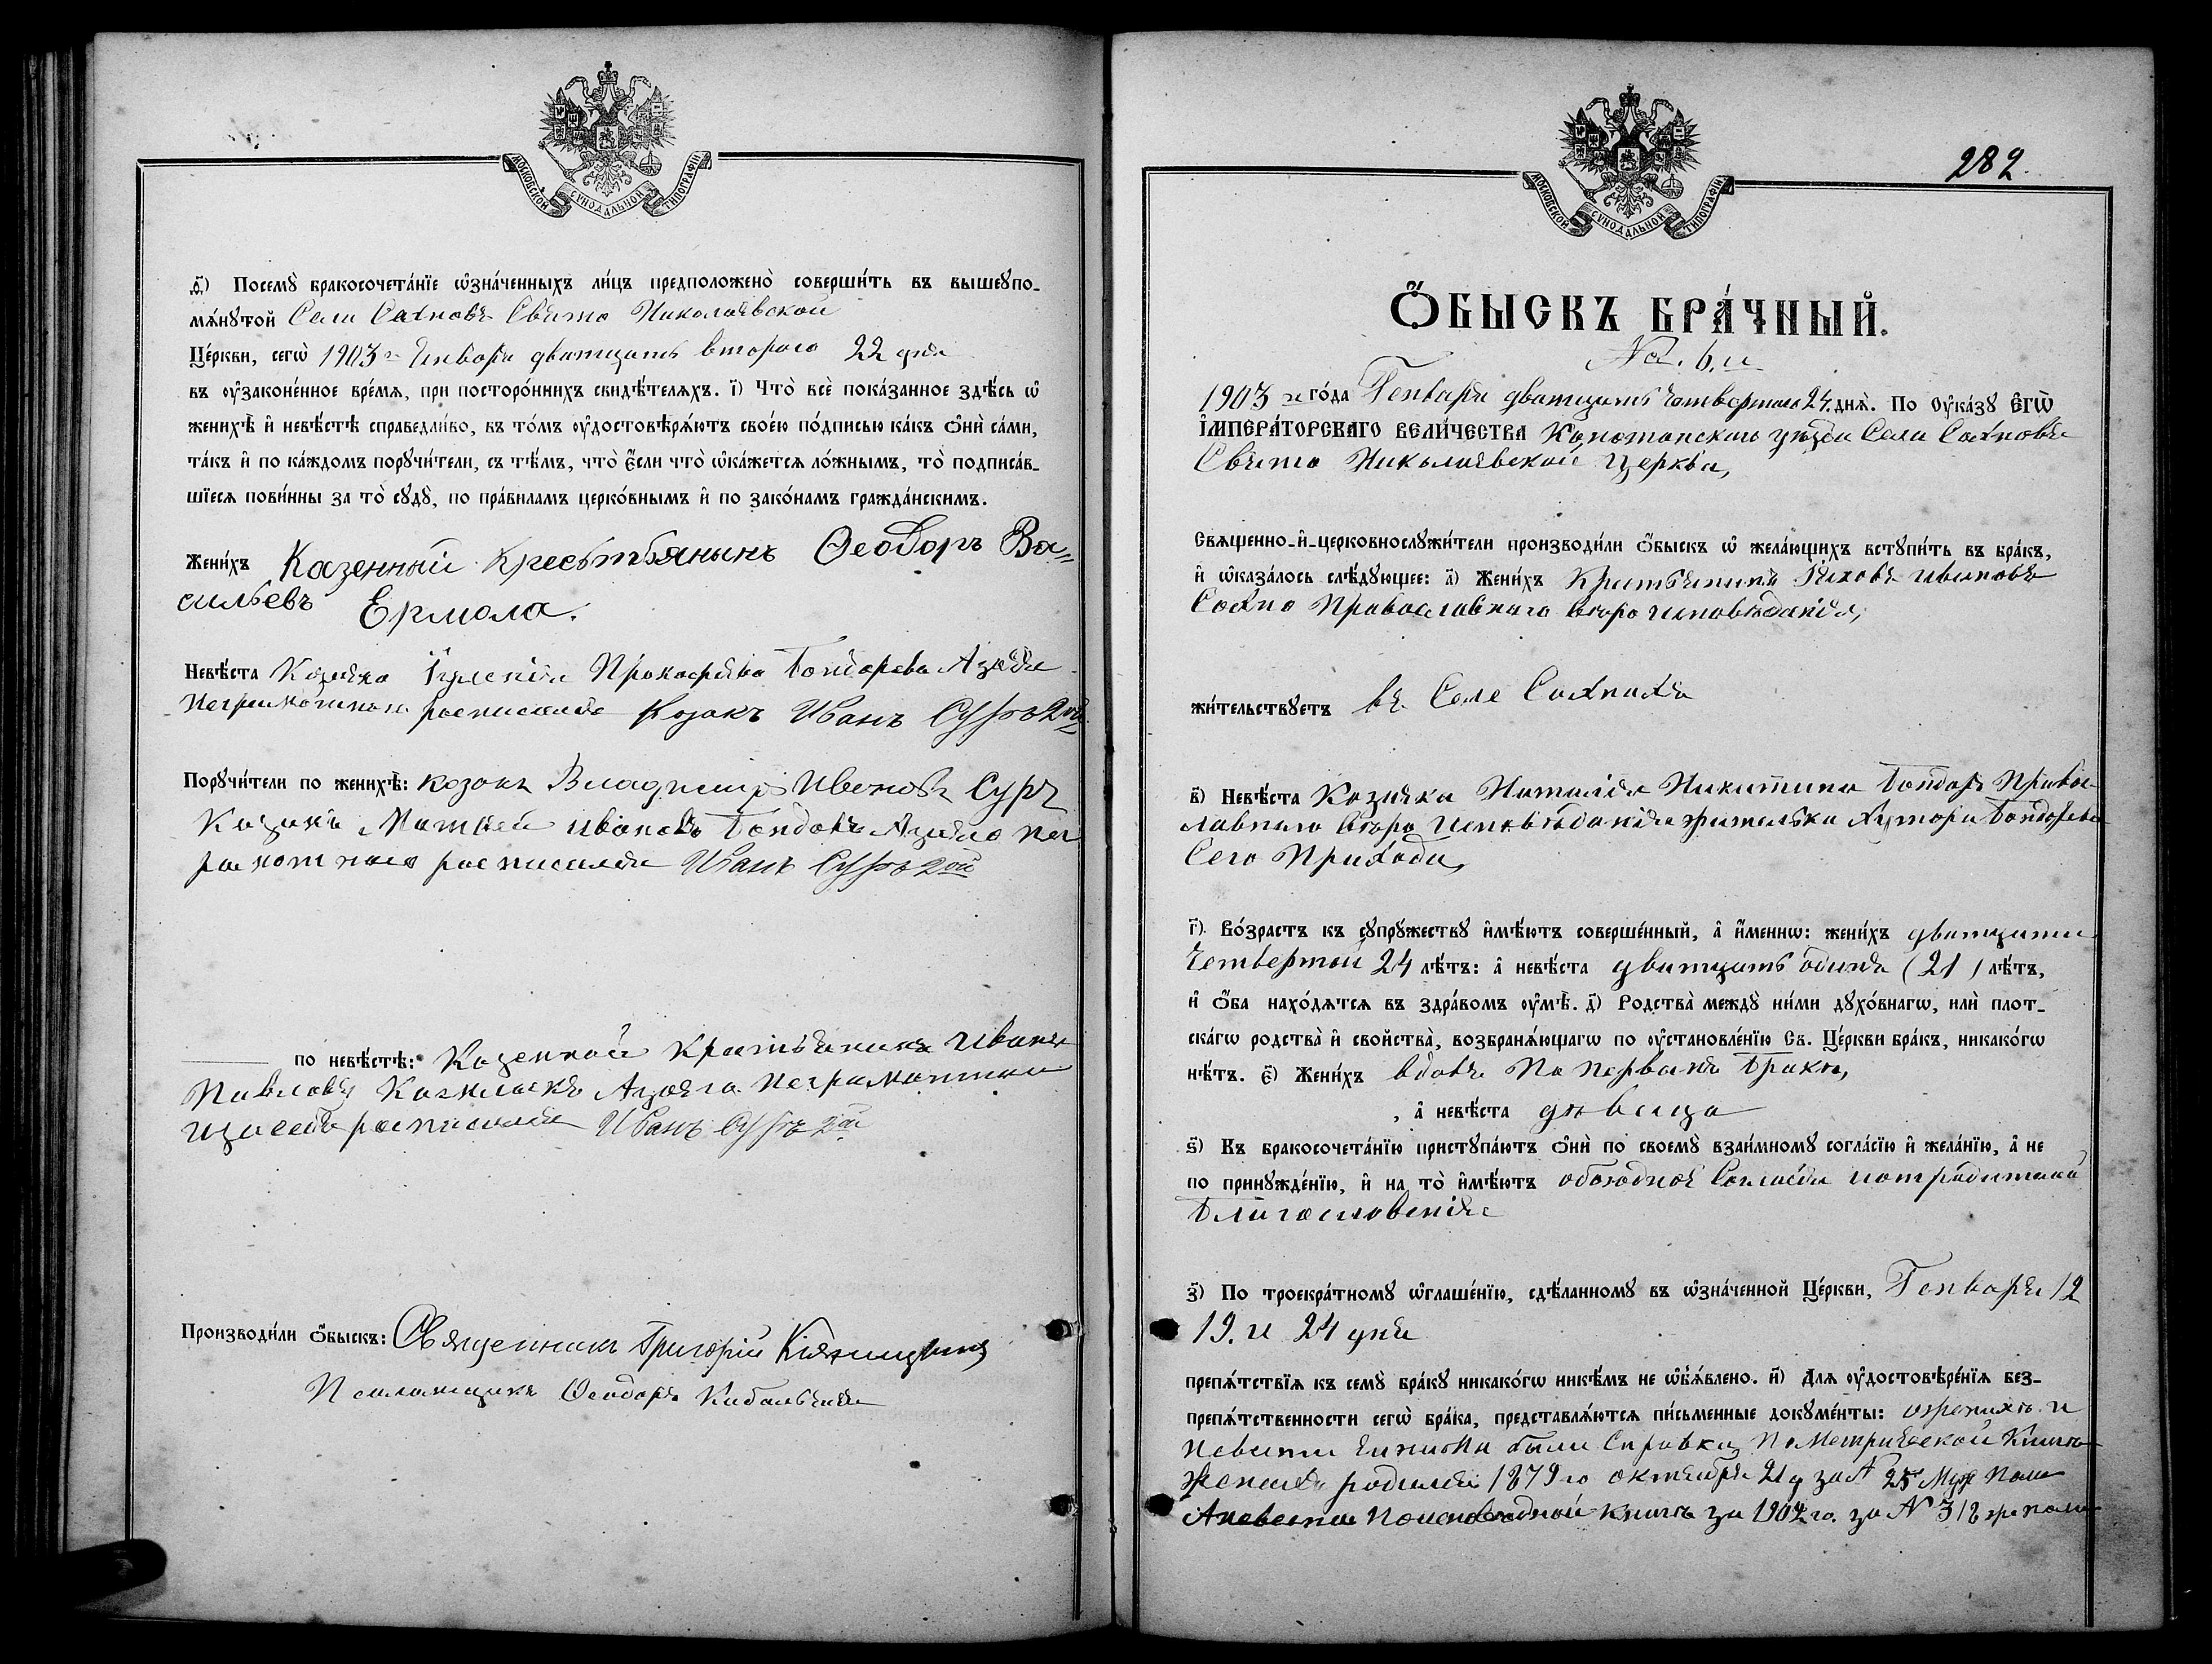 МОСКОВСКОЙ СѴНОДАЛЬНОЙ ТИПОГРАФІИ
ѳ҃) Посемꙋ̀ бракосочета́нїе ѡ҆зна́ченныхъ ли́цъ предположено̀ соверши́ть въ вышеꙋпо-
мѧ́нꙋтой Села Сахновъ Свято Николаевской
Це́ркви, сегѡ̀ 1903 г Января дватцать второго 22 дня
въ ᲂу҆законе́нное вре́мѧ, при посторо́ннихъ свидѣ́телѧхъ. і҃) Что̀ всѐ пока́занное здѣ́сь ѡ҆
женихѣ̀ и҆ невѣ́стѣ справедли́во, въ то́мъ ᲂу҆достовѣрѧ́ютъ свое́ю по́дписью ка́къ ѻ҆нѝ са́ми,
та́къ и҆ по ка́ждомъ порꙋчи́тели, съ тѣ́мъ, что̀ є҆́сли что̀ ѡ҆ка́жетсѧ ло́жнымъ, то̀ подписа́в-
шїесѧ пови́нны за то̀ сꙋдꙋ̀, по пра́виламъ церко́внымъ и҆ по зако́намъ гражда́нскимъ.
Жени́хъ Казенный Крестьянынъ Ѳеодоръ Ва=
сильевъ Ермола.
Невѣ́ста Козачка Прокофіева Бондарева Азанея
неграмотною росписался Козакъ Иванъ Суръ 2й
Порꙋчи́тели по женихѣ̀: козакъ Владимиръ Ивановъ Суръ
Козакъ Матвей Ивановъ Бондаръ Азанего нег
рамотного росписался Иванъ Суръ 2ой
по невѣ́стѣ: Казенной Крестьянинъ Иванъ
Павловъ Азанего неграмотнаго
росписался Иванъ Суръ 2ой
Производи́ли ѻ҆́быскъ: Священникъ Григорій
Псаломщикъ Ѳеодоръ Кибальчичъ
МОСКОВСКОЙ СѴНОДАЛЬНОЙ ТИПОГРАФІИ
282.
Ѻ҆́БЫСКЪ БРА́ЧНЫЙ.
No. 6.й
1903 го го́да Генваря дватцать Четвертого 24. днѧ̀. По Оу҆ка́зꙋ Є҆гѡ̀
И҆МПЕРА́ТОРСКАГО ВЕЛИ́ЧЕСТВА Конотопского уезда Села Сахновъ
Свято Николаевской Церкви,
Свѧщенно-и҆-церковнослꙋжи́тели производи́ли ѻ҆́быскъ ѡ҆ жела́ющихъ встꙋпи́ть въ бра́къ,
и҆ ѡ҆каза́лось слѣ́дꙋющее: а҃) Жени́хъ Крестьянинъ Яковъ Ивановъ
Сахно Православнаго вѣроисповѣданія,
жи́тельствꙋетъ въ Селе Сахнахъ
в҃) Невѣ́ста Козачка Наталія Никитина Бондаръ Правос
лавнаго вѣроисповѣданія жителька Хутора Бондарева
Сего Прихода,
г҃) Во́зрастъ къ сꙋпрꙋ́жествꙋ и҆мѣ́ютъ соверше́нный, а҆ и҆́меннѡ: жени́хъ дватцати
Четвертой 24 лѣ́тъ: а҆ невѣ́ста дватцать одиня (21) лѣ́тъ,
и҆ ѻ҆́ба нахо́дѧтсѧ въ здра́вомъ ᲂу҆мѣ̀. д҃) Родства̀ междꙋ̀ ни́ми дꙋхо́внагѡ, илѝ плот-
ска́гѡ родства̀ и҆ свойства̀, возбранѧ́ющагѡ по ᲂу҆становле́нїю Св. Це́ркви бра́къ, никако́гѡ
нѣ́тъ. є҃) Жени́хъ вдовъ По первымъ Бракъ,
, а҆ невѣ́ста дѣвица
ѕ҃) Къ бракосочета́нїю пристꙋпа́ютъ ѻ҆нѝ по своемꙋ̀ взаи́мномꙋ согла́сїю и҆ жела́нїю, а҆ не
по принꙋжде́нїю, и҆ на то̀ и҆мѣ́ютъ обоюдное Согласія
Благословенія
з҃) По троекра́тномꙋ ѡ҆глаше́нїю, сдѣ́ланномꙋ въ ѡ҆зна́ченной Це́ркви, Генваря 12
19. и 24 дня
препѧ́тствїѧ къ семꙋ̀ бра́кꙋ никако́гѡ никѣ́мъ не ѡ҆б̾ѧ́влено. и҃) Длѧ ᲂу҆достовѣре́нїѧ без-
препѧ́тственности сегѡ̀ бра́ка, представлѧ́ютсѧ пи́сьменные докꙋме́нты: ожениху и
невести были Справки По Метрической Книги
Женихъ родился 1879 го октября 21 д за № 25 Муж пола
Аневеста книги за 1902 го. за № 31 пола